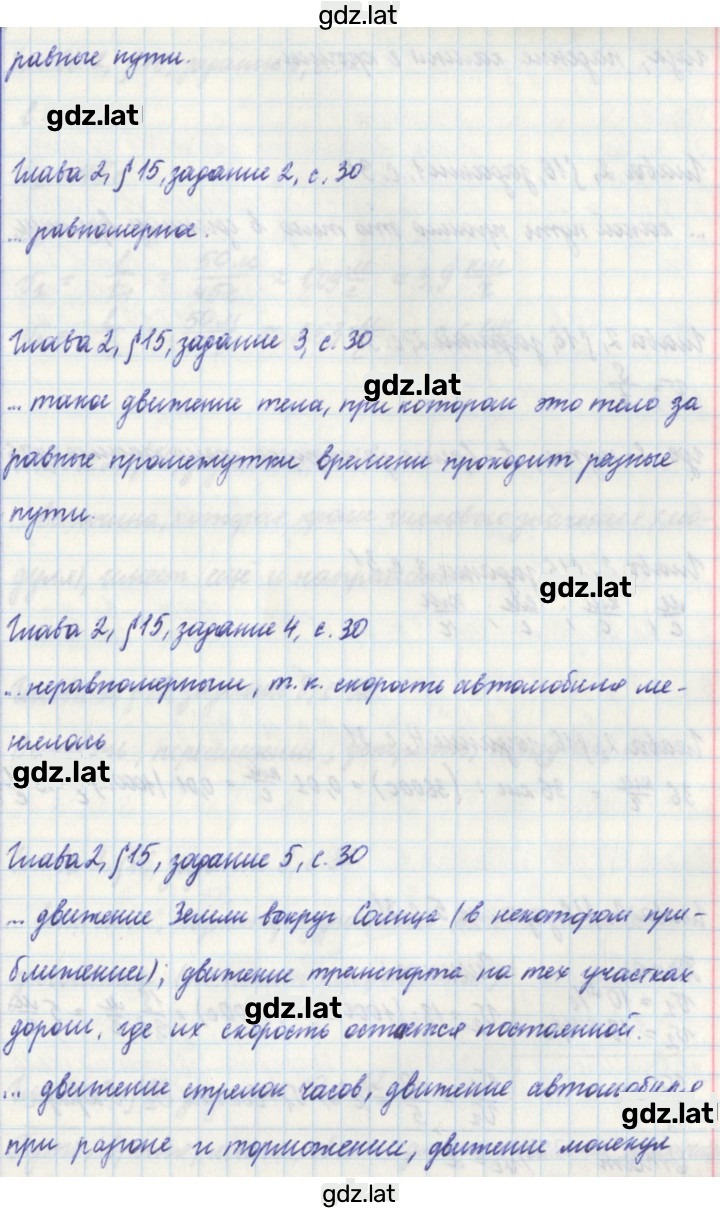 gdz.lat
равные пути.
gdz.lat
Глава 2, § 15, задание 2, с. 30
... равномерное.
Глава 2, § 15, задание 3, с. 30
gdz.lat
... такое движение тела, при котором это тело за
равные промежутки времени проходит разные
пути.
gdz.lat
Глава 2, § 15, задание 4, с. 30
... неравномерным, т. к. скорость автомобиля ме-
нялась
gdz.lat
Глава 2, § 15, задание 5, с. 30
... движение Земли вокруг Солнца (в некотором при-
ближении); движение транспорта на тех участках
gdz.lat
дороги, где их скорость остается постоянной.
... движение стрелок часов, движение автомобиля
gdz.lat
при разгоне и торможении, движение молекул
gdz.lat